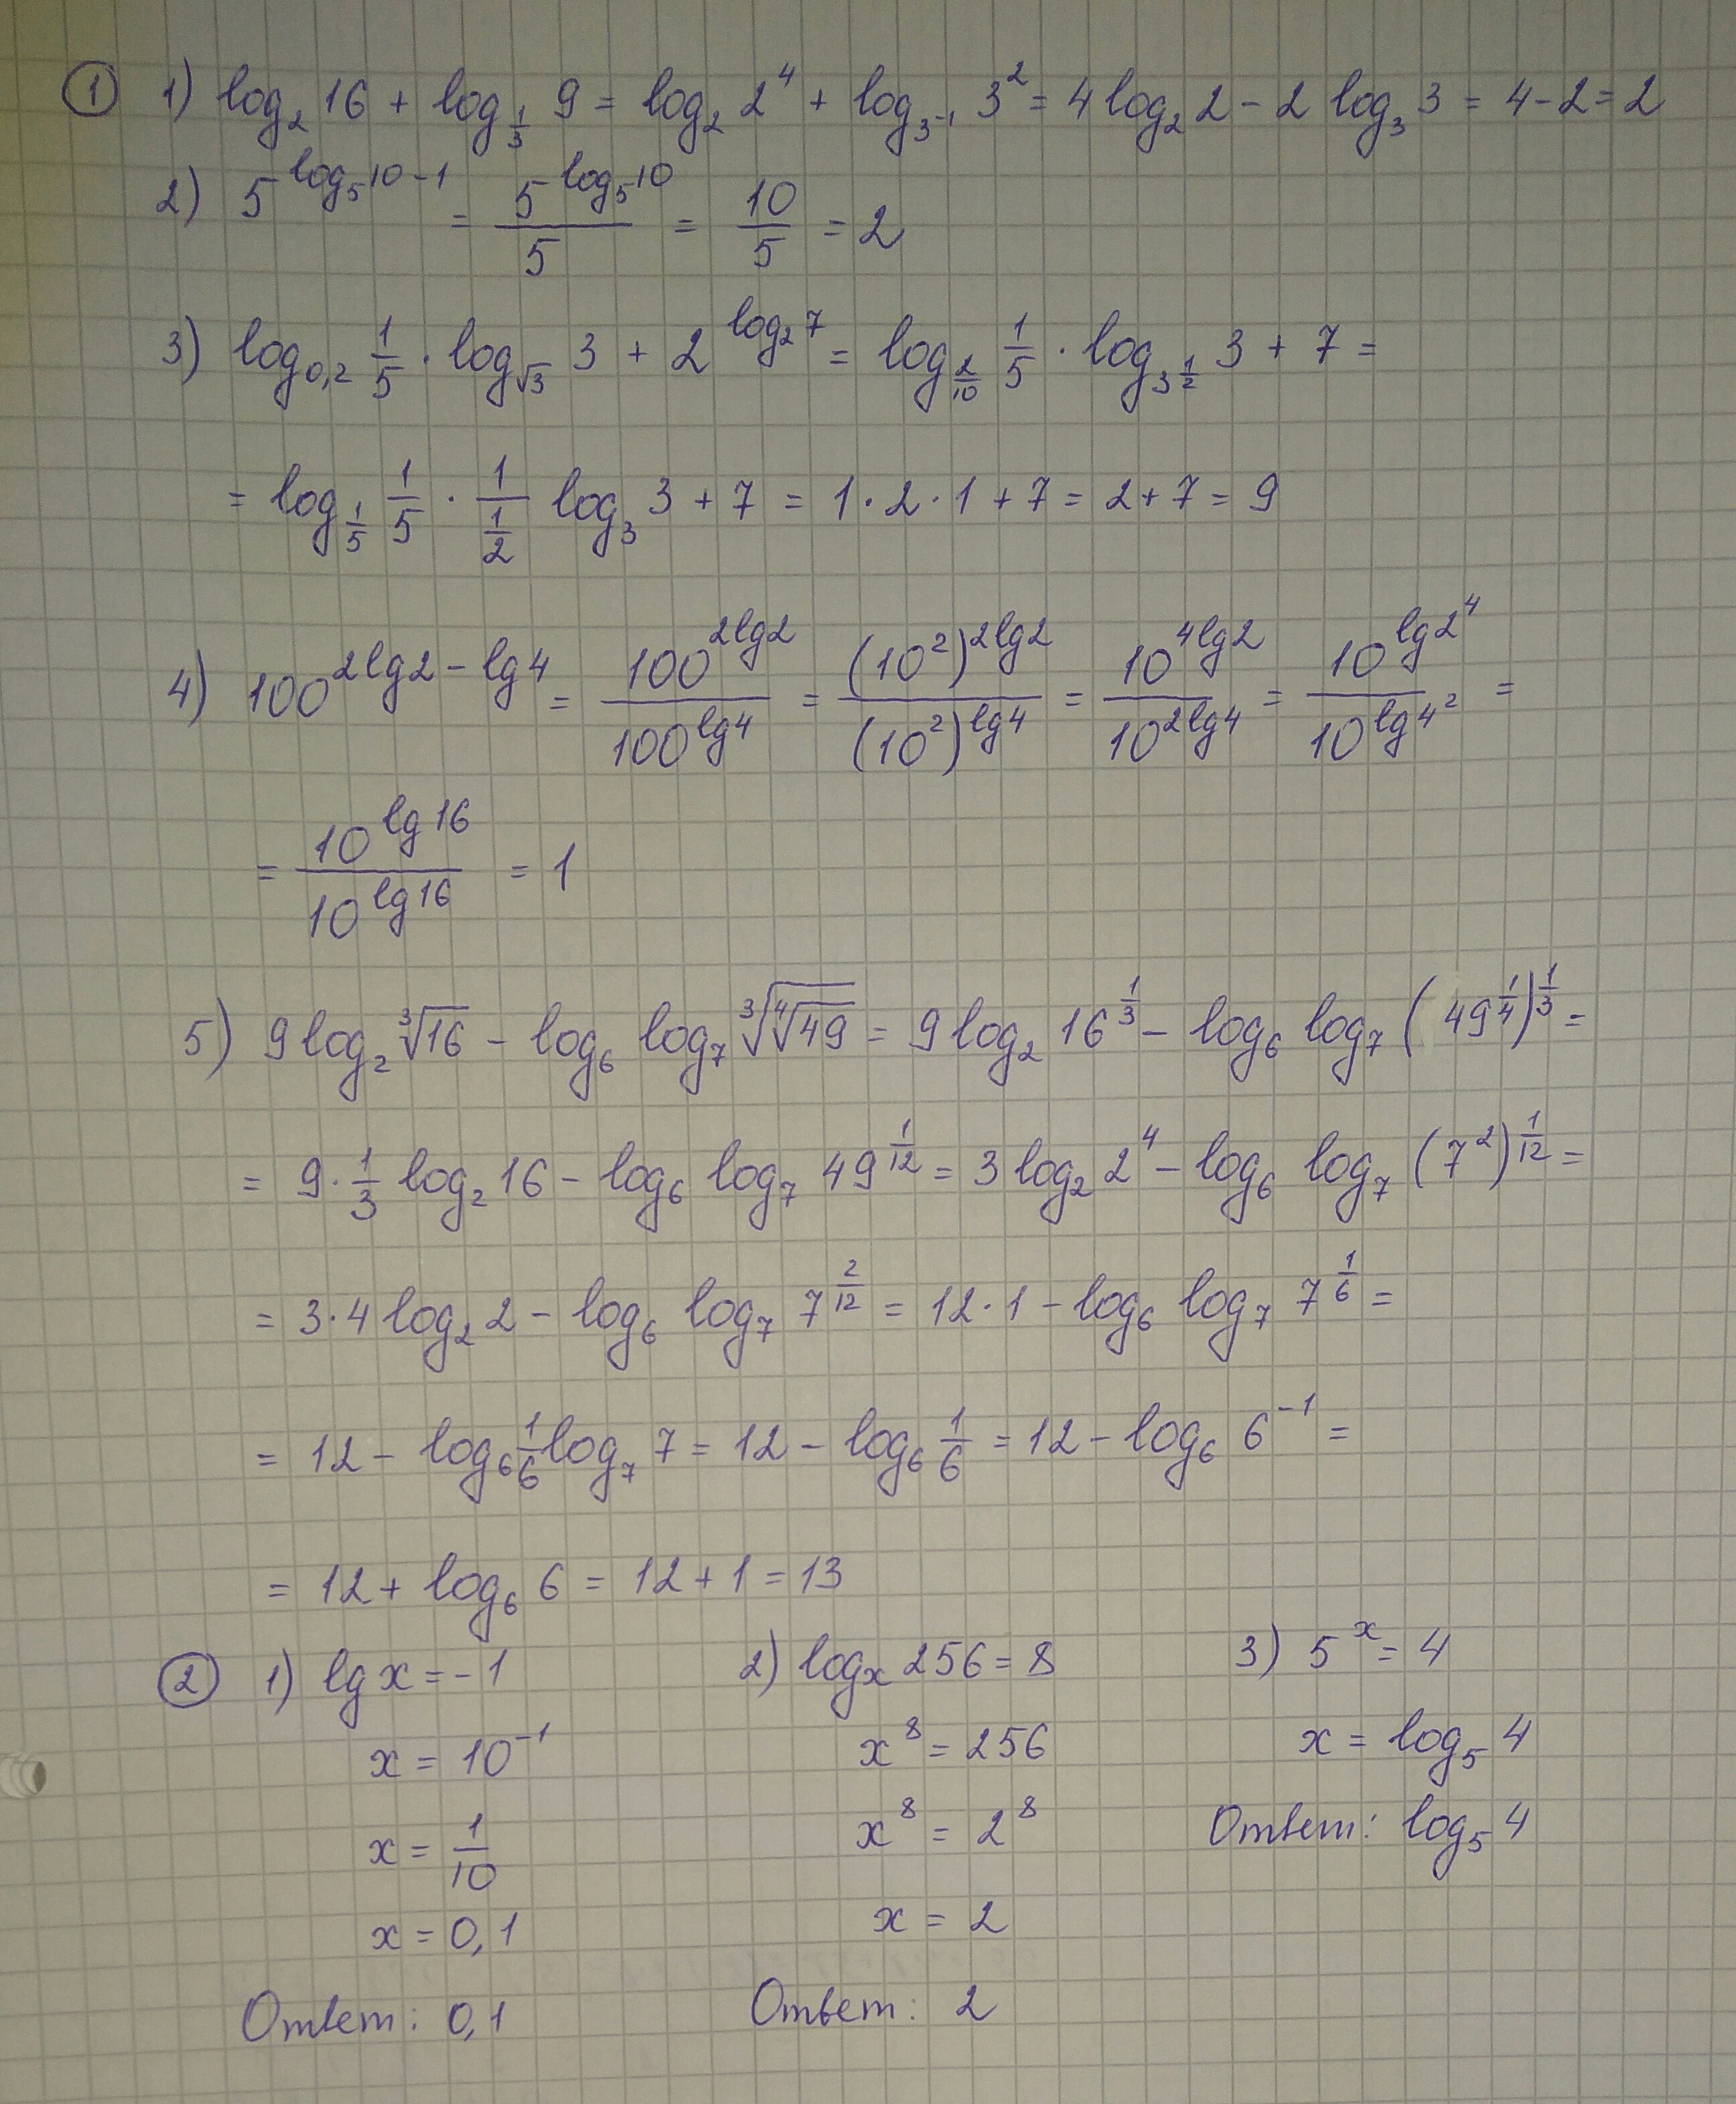 ① 1) log₂ 16 + log_{1/3} 9 = log₂ 2⁴ + log_{3⁻¹} 3² = 4 log₂ 2 - 2 log₃ 3 = 4 - 2 = 2
2) 5^{log₅ 10 - 1} = 5^{log₅ 10}/5 = 10/5 = 2
3) log_{0,2} 1/5 · log_{√3} 3 + 2^{log₂ 7} = log_{2/10} 1/5 · log_{3^{1/2}} 3 + 7 =
= log_{1/5} 1/5 · 1/(1/2) log₃ 3 + 7 = 1 · 2 · 1 + 7 = 2 + 7 = 9
4) 100^{2lg2 - lg4} = 100^{2lg2}/100^{lg4} = (10²)^{2lg2}/(10²)^{lg4} = 10^{4lg2}/10^{2lg4} = 10^{lg2⁴}/10^{lg4²} =
= 10^{lg16}/10^{lg16} = 1
5) 9 log₂ ∛16 - log₆ log₇ ∛(∜49) = 9 log₂ 16^{1/3} - log₆ log₇ (49^{1/4})^{1/3} =
= 9 · 1/3 log₂ 16 - log₆ log₇ 49^{1/12} = 3 log₂ 2⁴ - log₆ log₇ (7²)^{1/12} =
= 3 · 4 log₂ 2 - log₆ log₇ 7^{2/12} = 12 · 1 - log₆ log₇ 7^{1/6} =
= 12 - log₆ 1/6 log₇ 7 = 12 - log₆ 1/6 = 12 - log₆ 6⁻¹ =
= 12 + log₆ 6 = 12 + 1 = 13
② 1) lg x = -1
x = 10⁻¹
x = 1/10
x = 0,1
Ответ: 0,1
2) logₓ 256 = 8
x⁸ = 256
x⁸ = 2⁸
x = 2
Ответ: 2
3) 5ˣ = 4
x = log₅ 4
Ответ: log₅ 4